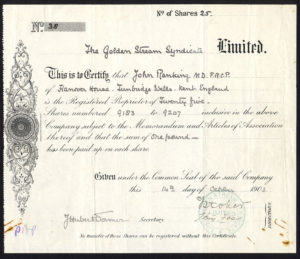 No of Shares 25.
No. 38
The Golden Stream Syndicate Limited.
This is to Certify that John Ranking M.D. F.R.C.P.
of Hanover House Tunbridge Wells Kent England
is the Registered Proprietor of Twenty five
Shares numbered 9183 to 9207 inclusive in the above
Company subject to the Memorandum and Articles of Association
thereof and that the sum of One pound
has been paid up on each share
Given under the Common Seal of the said Company
this 14th day of October 190
Secretary
No transfer of these Shares can be registered without this Certificate.